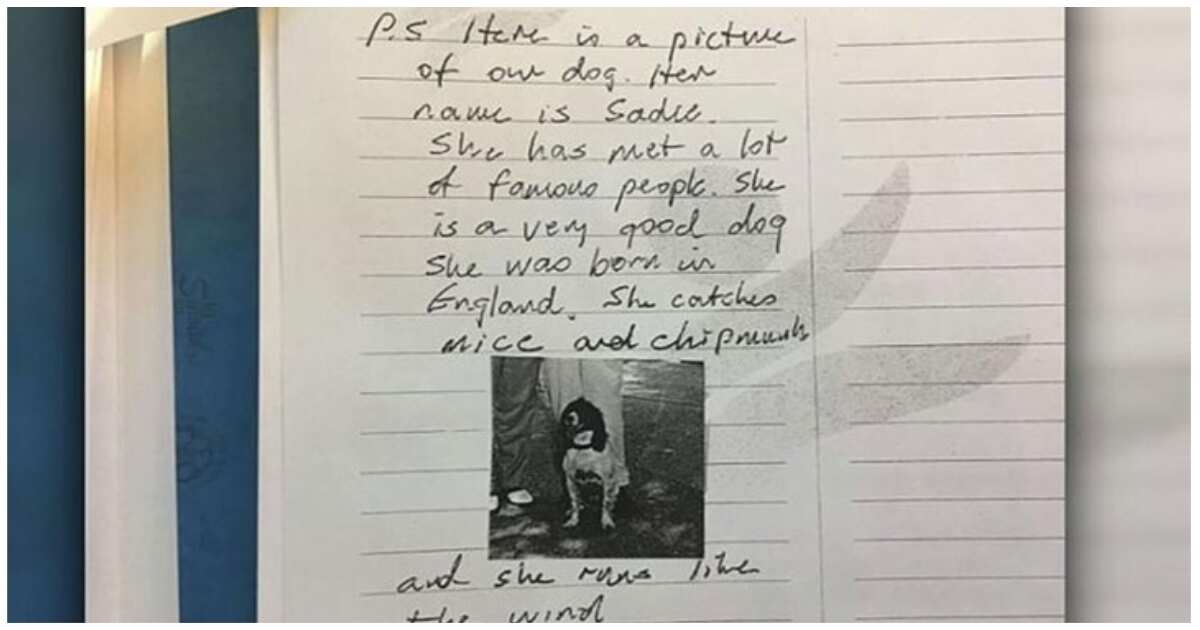 P.S Here is a picture
of our dog. Her
name is Sadie.
She has met a lot
of famous people. She
is a very good dog
She was born in
England. She catches
mice and chipmunks
and she runs like
the wind